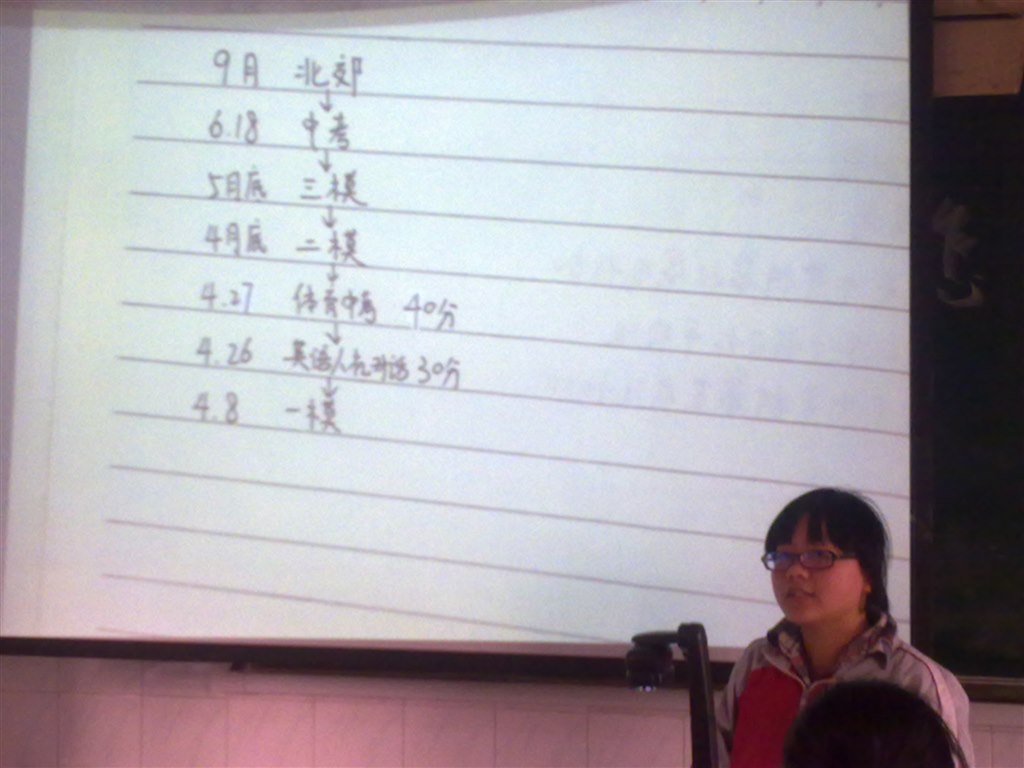 9月 北郊
6.18 中考
5月底 三模
4月底 二模
4.27 体育中考 40分
4.26 英语人机对话 30分
4.8 一模